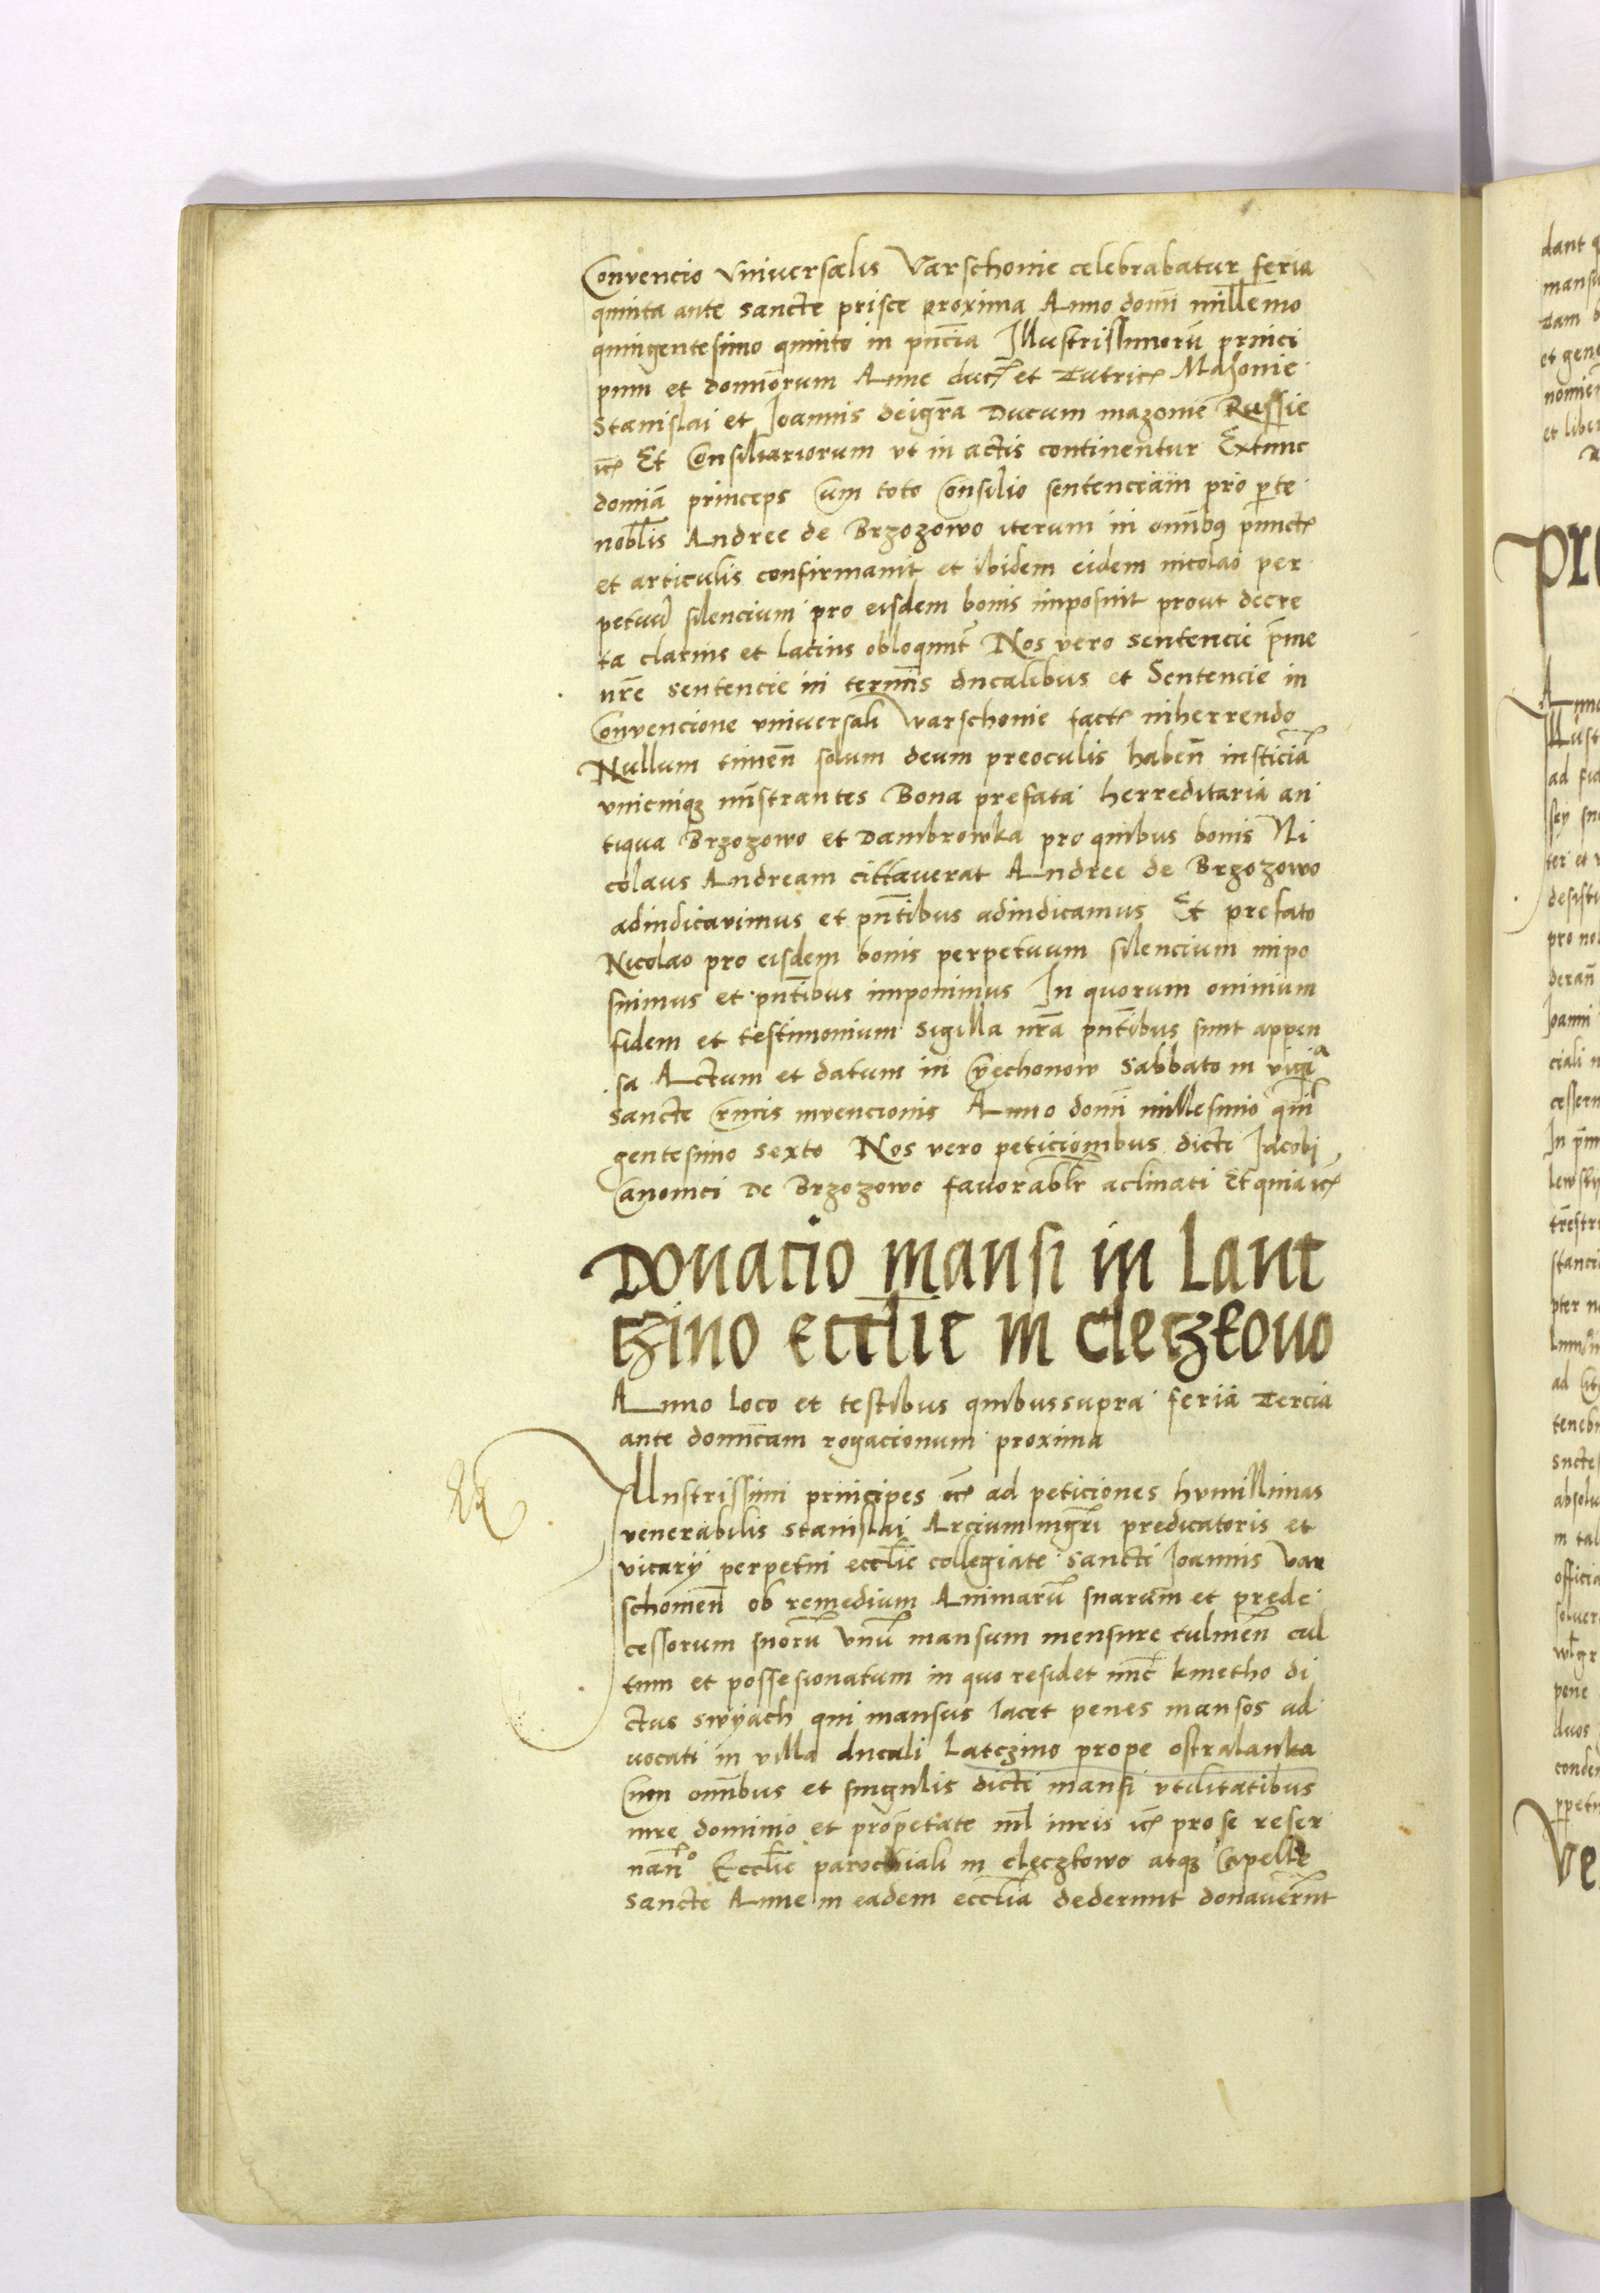 Convencio vniversalis Varschonie celebrabatur feria
quinta ante sancte prisce proxima Anno domi millemo
quingentesimo quinto in pnĉia Illustrissimorū princi
pum et dominorum Anne duc et Tutric Mazonie
Stanislai et Joannis deigrā Ducum mazonie Russie
ic Et Consiliariorum vt in actis continentur Extunc
domiā princeps Cum toto Consilio sentenciam pro pte
nobłis Andree de Brzozowo iterum in omībus punct
et articulis confirmavit et ibidem eidem nicolao per
petuū silencium pro eisdem bonis imposuit prout decre
ta clarius et lacius obloqunt Nos vero sentencie pme
nrē sentencie in termīs ducalibus et Sentencie in
Convencione vniversali Warschonie fact inherrendo
Nullum timen solum deum preoculis haben iusticiā
vnicuiq mīstrantes Bona prefata herreditaria an
tiqua Brzozowo et Dambrowka pro quibus bonis Ni
colaus Andream cittaverat Andree de Brzozowo
adiudicavimus et pntibus adiudicamus Et prefato
Nicolao pro eisdem bonis perpetuum silencium impo
suimus et pntibus imponimus In quorum ominium
fidem et testimonium sigilla nrā pntibus sunt appen
sa Actum et datum in Czechonow Sabbato in vigia
sancte Crucis invencionis Anno domi millesimo quī
gentesimo sexto Nos vero peticionibus dicti Jacobi
Canonici De Brzozowo favorabłr aclinati Et quia ic
Donacio mansi in Lant
czino eccłie in Cleczkovo
Anno loco et testibus quibussupra feria Tercia
ante domicam rogacionum proxima
Illustrissimi principes etc ad peticiones humillimas
venerabilis Stanislai Arcium mgri predicatoris et
vicarij perpetui eccłie collegiate sancti Joannis Var
schonien ob remedium Animarū suarum et prede
cessorum suorū vnū mansum mensure culmen cul
tum et possesionatum in quo residet nūc kmetho di
ctus swyach qui mansus Jacet penes mansos ad
vocati in villa ducali Latczino prope ostralanka
Cum omībus et singulis dicti mansi vtilitatibus
iure dominio et propetate nił iuris ic pro se reser
nan Eccłie parochiali in cleczkowo atq Capelle
sancte Anne in eadem eccłia dederunt donaverunt